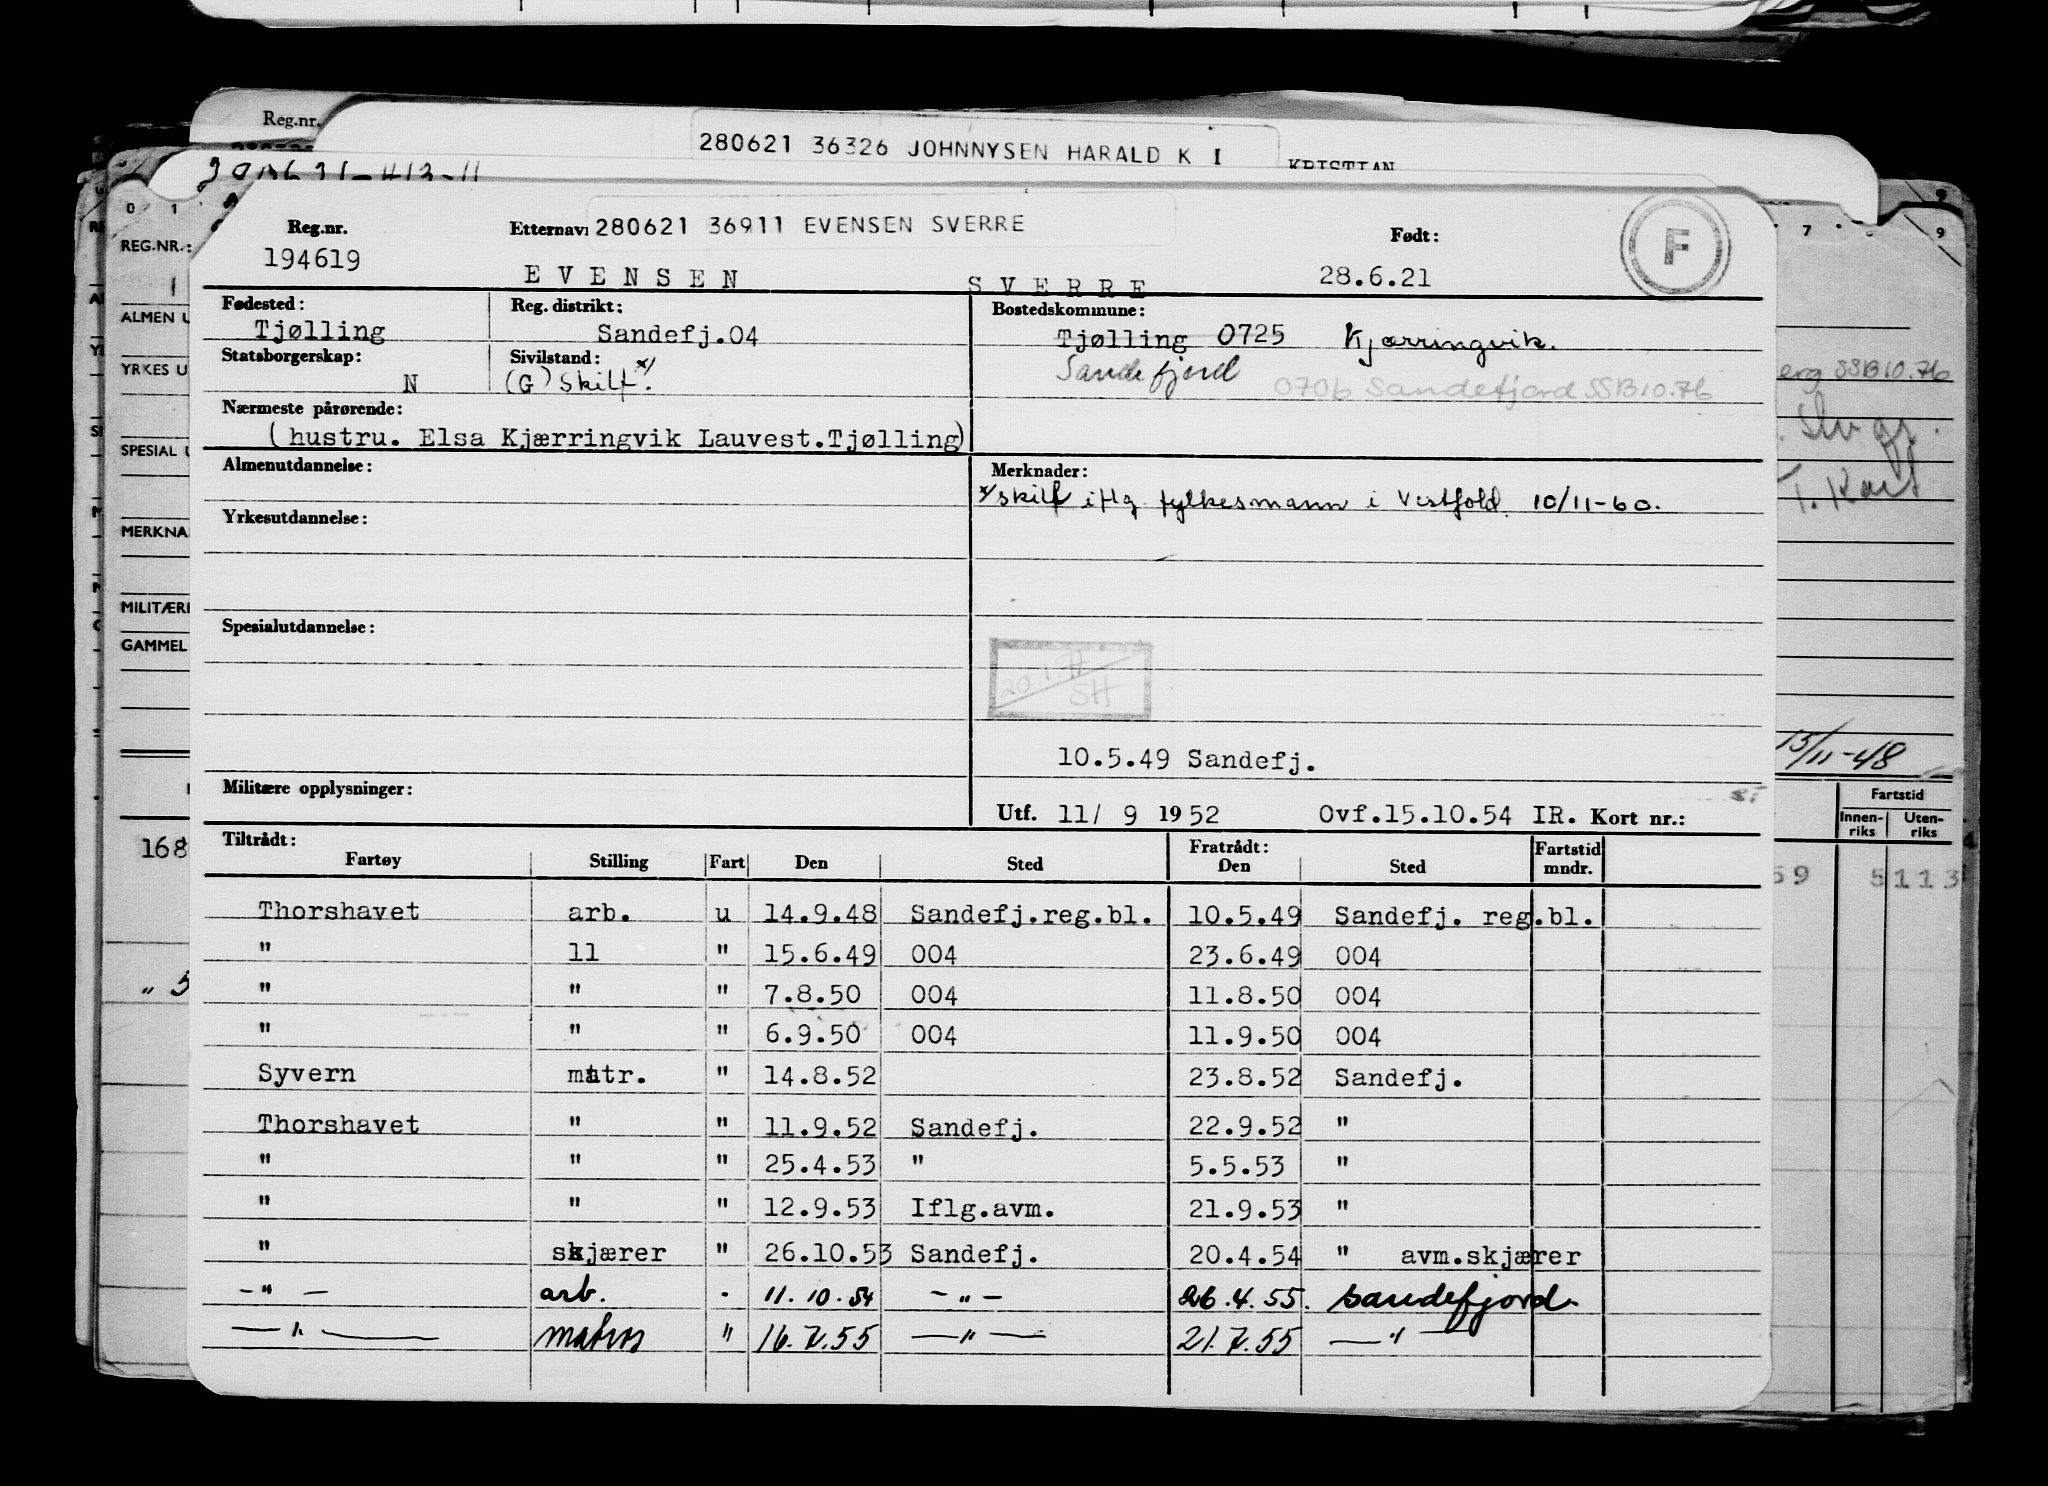 Reg.nr.
280621 36326 JOHNNYSEN HARALD K I
KRISTIAN
0 1
7 9
REG.NR.:
ALMEN U
YRKES U
SPECIAL U
MERKNA
MILITÆRE
GAMMEL
erg SSB 10.76
13/11-48
Fartstid
Innen-riks Uten-riks
168
59 5113
" 5
Reg.nr. Etternavn 280621 36911 EVENSEN SVERRE Født: F
194619 E V E N S E N S V E R R E 28.6.21
Fødested: Reg. distrikt: Bostedskommune:
Tjølling Sandefj.04 Tjølling 0725 Kjærringvik.
Statsborgerskap: Sivilstand: Sandefjord
N (G) Skilt x/ 0706 Sandefjord SSB 10.76
Nærmeste pårørende:
(hustru. Elsa Kjærringvik Lauvest.Tjølling)
Almenutdannelse: Merknader:
x/ skilt iflg fylkesmann i Vestfold. 10/11-60.
Yrkesutdannelse:
Spesialutdannelse:
20.1.77
SH
10.5.49 Sandefj.
Militære opplysninger:
Utf. 11/ 9 1952 Ovf.15.10.54 IR. Kort nr.:
Tiltrådt: Fratrådt:
Fartøy Stilling Fart Den Sted Den Sted Fartstid mndr.
Thorshavet arb. u 14.9.48 Sandefj.reg.bl. 10.5.49 Sandefj. reg.bl.
" ll " 15.6.49 004 23.6.49 004
" " " 7.8.50 004 11.8.50 004
" " " 6.9.50 004 11.9.50 004
Syvern matr. " 14.8.52 23.8.52 Sandefj.
Thorshavet " " 11.9.52 Sandefj. 22.9.52 "
" " " 25.4.53 " 5.5.53 "
" " " 12.9.53 Iflg.avm. 21.9.53 "
" skjærer " 26.10.53 Sandefj. 20.4.54 " avm.skjærer
- " - arb. . 11.10.54 - " - 26.4.55. Sandefjord
- " - matros " 16.7.55 - " - 21.7.55 - " -